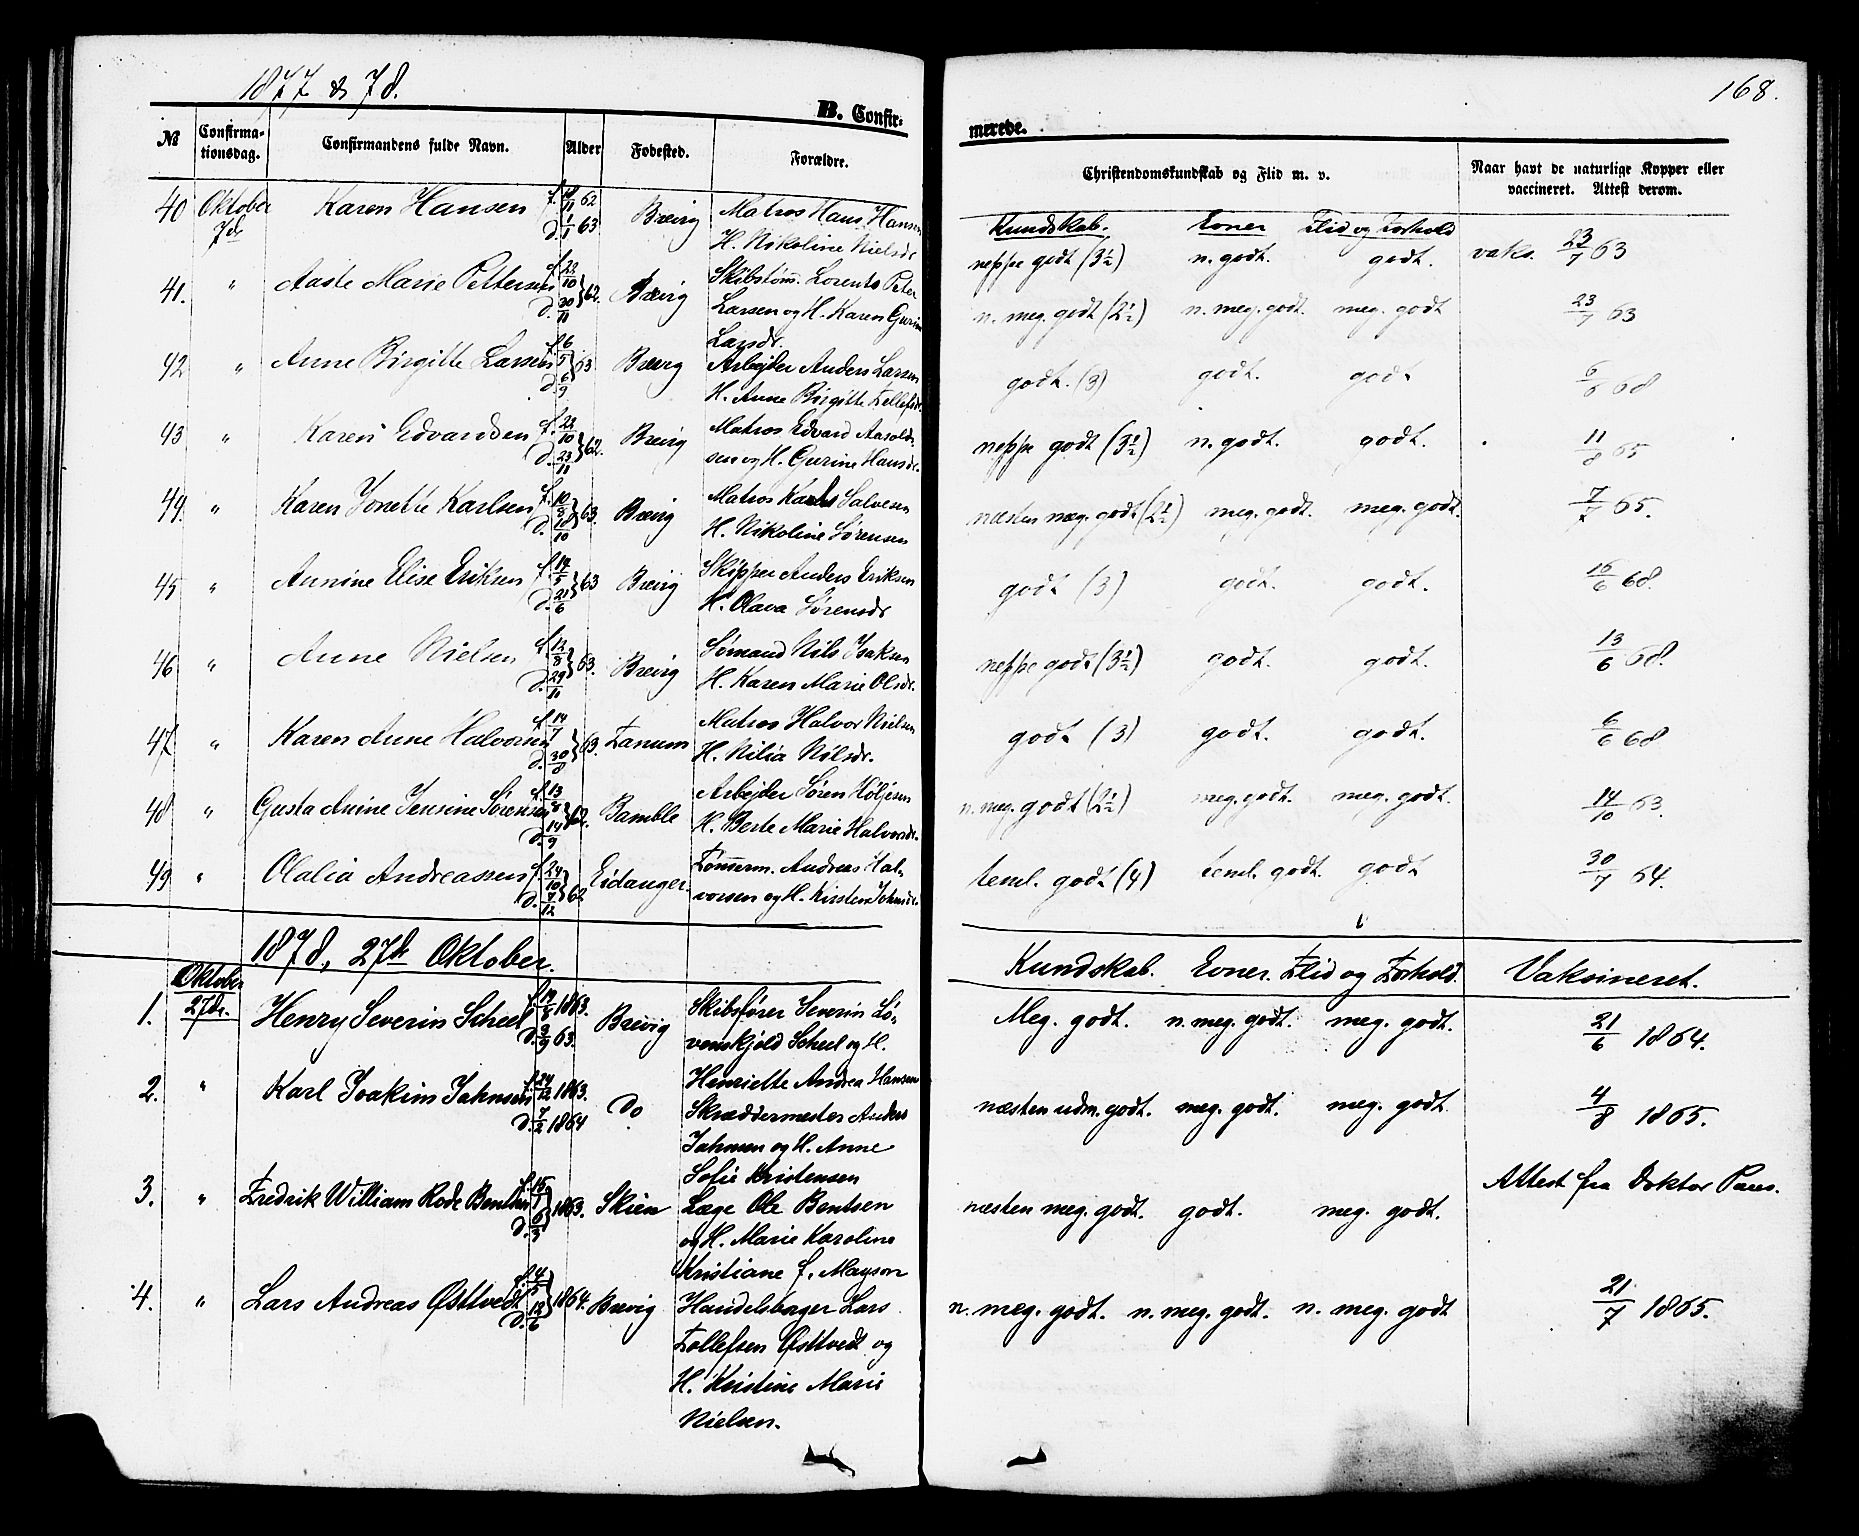 1877 & 78.
168.
B. Confir-
merede.
№
Confirma-
tionsdag.
Confirmandens fulde Navn.
Alder
Fødested.
Forældre.
Christendomskundskab og Flid m. v.
Naar havt de naturlige Kopper eller
vaccineret. Attest derom.
Kundskab. Evner Flid og Forhold
40 Oktober 7de Karen Hansen f. 62 d. 1/1 63 Brevig Matros Hans Hansen
H. Nikoline Nielsdr
neppe godt (3½) n. godt. godt. vaks. 23/7 63
41. " Aaste Marie Pettersen f. 22/10 d. 30/11 62. Brevig Skibstømm. Lorents Peter
Larsen og H. Karen Gurine
Larsdr.
n. meg. godt (2½) n. meg. godt. meg. godt 23/7 63
42 " Anne Birgitte Larsen f. 6/5 d. 6/9 63 Brevig Arbejder Anders Larsen
H. Anne Birgitte Tollefsdr.
godt. (3) godt. godt 6/6 68
43 " Karen Edvardsen f. 22/10 d. 23/11 62. Brevig Matros Edvard Aarolds-
sen og H. Gurine Hansdr.
neppe godt (3½) n. godt. godt. 11/8 65
44. " Karen Jonette Karlsen f. 10/8 d. 18/10 63. Brevig Matros Karl Salvesen
H. Nikoline Sørensen
næsten meg. godt (2½) meg. godt. meg. godt. 7/7 65.
45 " Annine Elise Eriksen f. 14/5 d. 21/6 63 Brevig Skipper Anders Eriksen
H. Olava Sørensdr
godt (3) godt. godt. 16/6 68.
46 " Anne Nielsen f. 12/8 d. 29/10 63. Brevig Sømand Nils Isaksen
H. Karen Marie Olsdr.
neppe godt (3½) godt. godt. 13/6 68.
47 " Karen Anne Halvorsen f. 14/7 d. 30/8 63. Tanum Matros Halvor Nielsen
H. Nilia Nilsdr.
godt (3) godt. godt. 6/6 68
48 " Gusta Anine Jensine Sørensen f. 13/8 d. 14/9 62. Bamble Arbejder Søren Høljesen
H. Berte Marie Halvorsdr.
n. meg. godt (2½) meg. godt. meg. godt. 14/10 63.
49 " Olalia Andreassen f. 24/10 d. 7/12 62 Eidanger. Tømmerm. Andreas Hal-
vorsen og H. Kirsten Johnsdr.
teml. godt (4) teml. godt. godt 30/7 64.
1878, 27de Oktober.
Kundskab. Evner. Flid og Forhold. Vaksineret.
1. Oktober 27de. Henry Severin Scheel f. 19/6 1863. d. 3/9 63. Brevig Skibsfører Severin Lø-
venskjold Scheel og H.
Henriette Andrea Hansen
Meg. godt. n. meg. godt. meg. godt. 21/6 1864.
2. " Karl Joakim Jahnsen f. 24/12 1863. d. 7/2 1864 Do Skræddermester Anders
Jahnsen og H. Anne
Sofie Kristensen
næsten udm. godt. meg. godt. meg. godt 4/8 1865.
3. " Fredrik William Rode Bentsen f. 15/1 d. 6/3 1863. Skien Læge Ole Bentsen
og H. Marie Karoline
Kristiane f. Mayson
næsten meg. godt. godt. meg. godt. Attest fra Doktor Paus.
4. " Lars Andreas Østtvedt f. d. 12/6 1864. Brevig Handelsborger Lars
Tollefsen Østtvedt og
H. Kristine Marie
Nielsen.
n. meg. godt. n. meg. godt. n. meg. godt 21/7 1865.